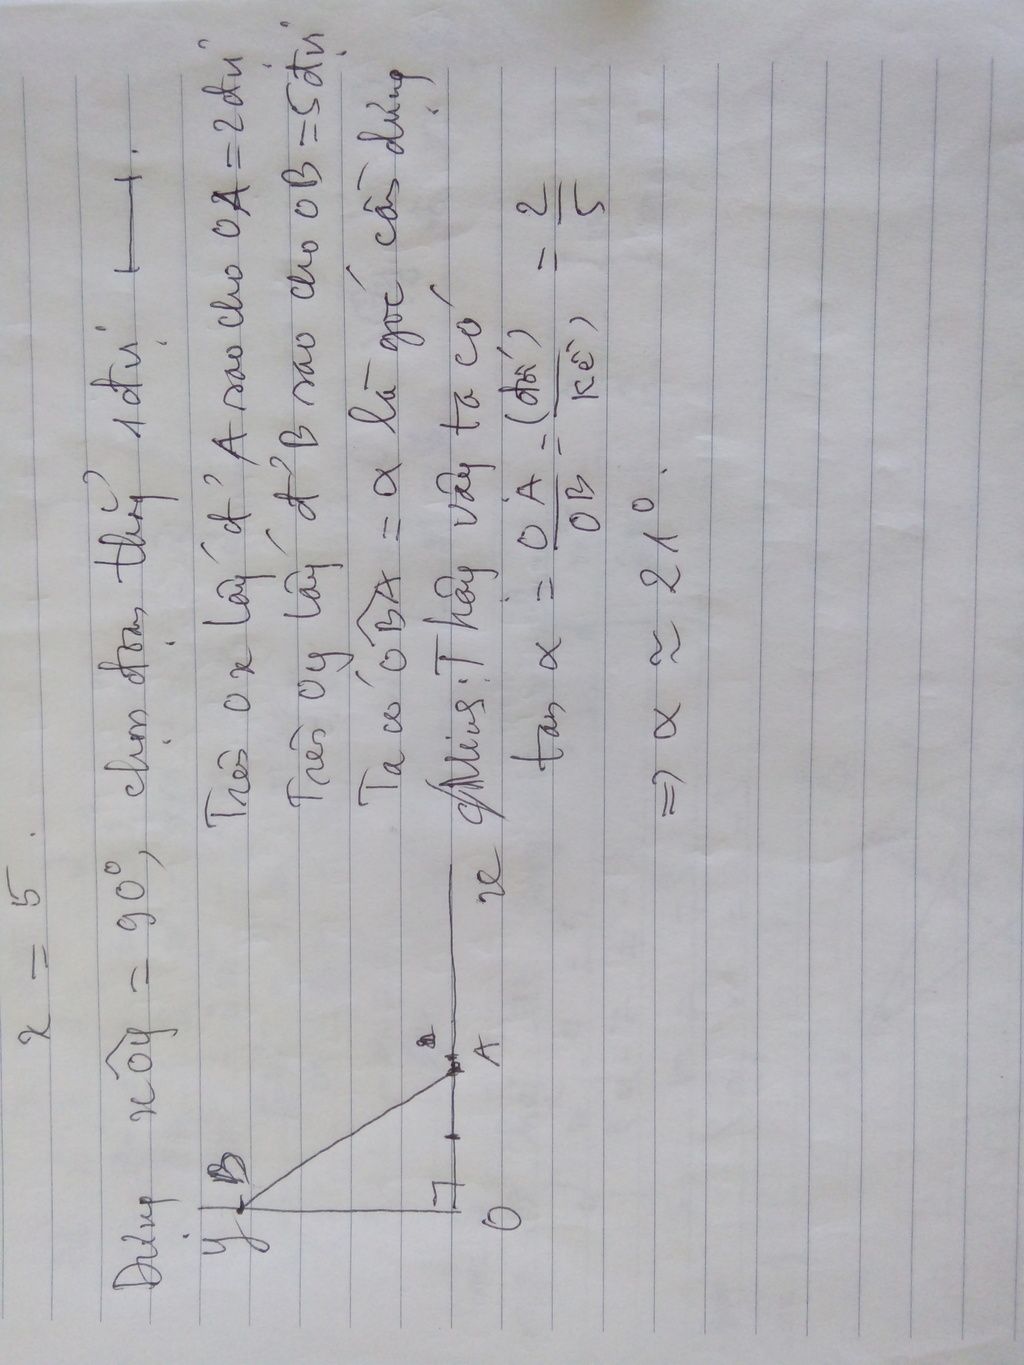 x = 5.
Dựng xÔy = 90°, chọn đoạn thẳng 1đvị
Trên Ox lấy đ' A sao cho OA = 2đvị
Trên Oy lấy đ' B sao cho OB = 5đvị
Ta có OB̂A = α là góc cần dựng
C/Minh: Thật vậy ta có
tan α = OA/OB = (đối)/kề) = 2/5
=> α ≈ 21°.
y
B
2
O
A
x